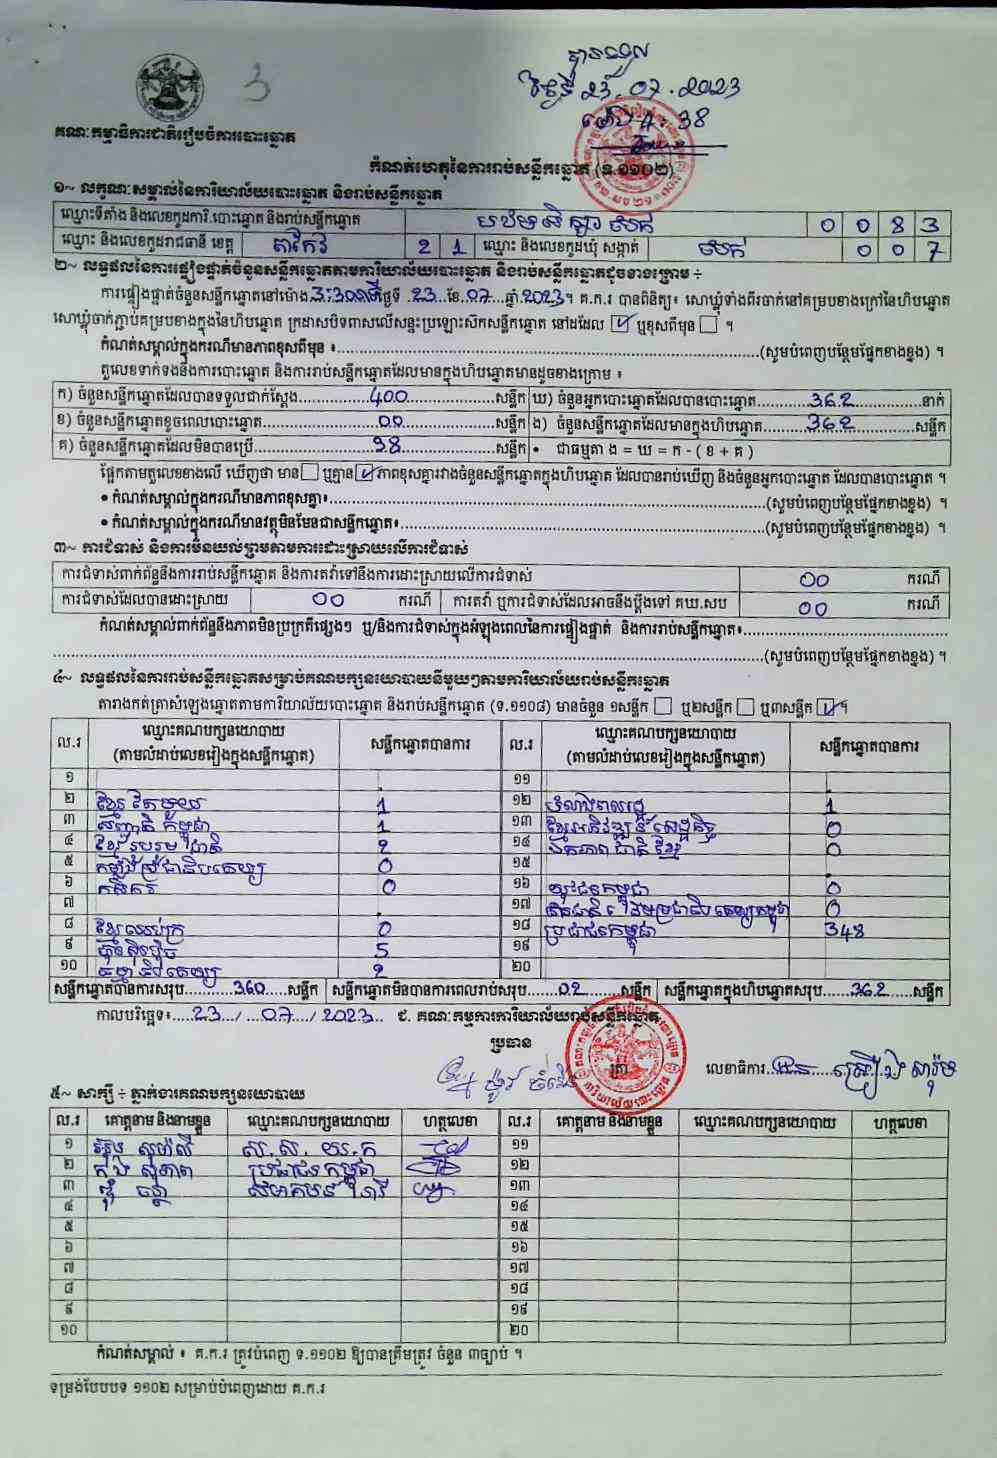 បានទទួល
3
ថ្ងៃទី 23.07.2023
ម៉ោង 4:38
គណៈកម្មាធិការជាតិរៀបចំការបោះឆ្នោត
កំណត់ហេតុនៃការរាប់សន្លឹកឆ្នោត (ទ.១១០២)
១~ លក្ខណៈសម្គាល់នៃការិយាល័យបោះឆ្នោត និងរាប់សន្លឹកឆ្នោត
ឈ្មោះទីតាំង និងលេខកូដការិ.បោះឆ្នោត និងរាប់សន្លឹកឆ្នោត 0 0 8 3
ឈ្មោះ និងលេខកូដរាជធានី ខេត្ត តាកែវ 2 1 ឈ្មោះ និងលេខកូដឃុំ សង្កាត់ 0 0 7
២~ លទ្ធផលនៃការផ្ទៀងផ្ទាត់ចំនួនសន្លឹកឆ្នោតតាមការិយាល័យបោះឆ្នោត និងរាប់សន្លឹកឆ្នោតដូចខាងក្រោម ÷
ការផ្ទៀងផ្ទាត់ចំនួនសន្លឹកឆ្នោតនៅម៉ោង 3:30នាទី ថ្ងៃទី 23 ខែ 07 ឆ្នាំ 2023។ គ.ក.រ បានពិនិត្យ៖ សោឃ្លុំទាំងពីរចាក់នៅគម្របខាងក្រៅនៃហិបឆ្នោត
សោឃ្លុំចាក់ភ្ជាប់គម្របខាងក្នុងនៃហិបឆ្នោត ក្រដាសបិទពាសលើសន្ទះប្រឡោះស៊កសន្លឹកឆ្នោត នៅដដែល ☑ ឬខុសពីមុន ☐ ។
កំណត់សម្គាល់ក្នុងករណីមានភាពខុសពីមុន ៖ (សូមបំពេញបន្ថែមផ្នែកខាងខ្នង) ។
តួលេខទាក់ទងនឹងការបោះឆ្នោត និងការរាប់សន្លឹកឆ្នោតដែលមានក្នុងហិបឆ្នោតមានដូចខាងក្រោម ៖
ក) ចំនួនសន្លឹកឆ្នោតដែលបានទទួលជាក់ស្តែង 400 សន្លឹក ឃ) ចំនួនអ្នកបោះឆ្នោតដែលបានបោះឆ្នោត 362 នាក់
ខ) ចំនួនសន្លឹកឆ្នោតខូចពេលបោះឆ្នោត 00 សន្លឹក ង) ចំនួនសន្លឹកឆ្នោតដែលមានក្នុងហិបឆ្នោត 362 សន្លឹក
គ) ចំនួនសន្លឹកឆ្នោតដែលមិនបានប្រើ 38 សន្លឹក • ជាធម្មតា ង = ឃ = ក - ( ខ + គ )
ផ្អែកតាមតួលេខខាងលើ ឃើញថា មាន ☐ ឬគ្មាន ☑ ភាពខុសគ្នារវាងចំនួនសន្លឹកឆ្នោតក្នុងហិបឆ្នោត ដែលបានរាប់ឃើញ និងចំនួនអ្នកបោះឆ្នោត ដែលបានបោះឆ្នោត ។
• កំណត់សម្គាល់ក្នុងករណីមានភាពខុសគ្នា៖ (សូមបំពេញបន្ថែមផ្នែកខាងខ្នង) ។
• កំណត់សម្គាល់ក្នុងករណីមានវត្ថុមិនមែនជាសន្លឹកឆ្នោត៖ (សូមបំពេញបន្ថែមផ្នែកខាងខ្នង) ។
៣~ ការជំទាស់ និងការមិនយល់ព្រមតាមការដោះស្រាយលើការជំទាស់
ការជំទាស់ពាក់ព័ន្ធនឹងការរាប់សន្លឹកឆ្នោត និងការតវ៉ាទៅនឹងការដោះស្រាយលើការជំទាស់ 00 ករណី
ការជំទាស់ដែលបានដោះស្រាយ 00 ករណី ការតវ៉ា ឬការជំទាស់ដែលអាចនឹងប្តឹងទៅ គឃ.សប 00 ករណី
កំណត់សម្គាល់ពាក់ព័ន្ធនឹងភាពមិនប្រក្រតីផ្សេងៗ ឬ/និងការជំទាស់ក្នុងអំឡុងពេលនៃការផ្ទៀងផ្ទាត់ និងការរាប់សន្លឹកឆ្នោត៖
(សូមបំពេញបន្ថែមផ្នែកខាងខ្នង) ។
៤~ លទ្ធផលនៃការរាប់សន្លឹកឆ្នោតសម្រាប់គណបក្សនយោបាយនីមួយៗតាមការិយាល័យរាប់សន្លឹកឆ្នោត
តារាងកត់ត្រាសំឡេងឆ្នោតតាមការិយាល័យបោះឆ្នោត និងរាប់សន្លឹកឆ្នោត (ទ.១១០៨) មានចំនួន ១សន្លឹក ☐ ឬ២សន្លឹក ☐ ឬ៣សន្លឹក ☑ ។
ល.រ ឈ្មោះគណបក្សនយោបាយ (តាមលំដាប់លេខរៀងក្នុងសន្លឹកឆ្នោត) សន្លឹកឆ្នោតបានការ ល.រ ឈ្មោះគណបក្សនយោបាយ (តាមលំដាប់លេខរៀងក្នុងសន្លឹកឆ្នោត) សន្លឹកឆ្នោតបានការ
១ ១១
២ ខ្មែរតែមួយ 1 ១២ 1
៣ សញ្ជាតិកម្ពុជា 1 ១៣ ខ្មែរអភិវឌ្ឍន៍សេដ្ឋកិច្ច 0
៤ ខ្មែររួបរួមជាតិ 2 ១៤ ឯកភាពជាតិខ្មែរ 0
៥ កម្លាំងប្រជាធិបតេយ្យ 0 ១៥
៦ កសិករ 0 ១៦ យុវជនកម្ពុជា 0
៧ ១៧ 0
៨ ខ្មែរឈប់ក្រ 0 ១៨ ប្រជាជនកម្ពុជា 348
៩ ហ៊្វុនស៊ិនប៉ិច 5 ១៩
១០ ធម្មាធិបតេយ្យ 2 ២០
សន្លឹកឆ្នោតបានការសរុប 360 សន្លឹក សន្លឹកឆ្នោតមិនបានការពេលរាប់សរុប 02 សន្លឹក សន្លឹកឆ្នោតក្នុងហិបឆ្នោតសរុប 362 សន្លឹក
កាលបរិច្ឆេទ៖ 23 / 07 / 2023 ជ. គណៈកម្មការការិយាល័យរាប់សន្លឹកឆ្នោត
ប្រធាន
ត្រា
លេខាធិការ
៥~ សាក្សី ÷ ភ្នាក់ងារគណបក្សនយោបាយ
ល.រ គោត្តនាម និងនាមខ្លួន ឈ្មោះគណបក្សនយោបាយ ហត្ថលេខា ល.រ គោត្តនាម និងនាមខ្លួន ឈ្មោះគណបក្សនយោបាយ ហត្ថលេខា
១ ស.ស.យ.ក ១១
២ ប្រជាជនកម្ពុជា ១២
៣ សមាគមន៍នារី ១៣
៤ ១៤
៥ ១៥
៦ ១៦
៧ ១៧
៨ ១៨
៩ ១៩
១០ ២០
កំណត់សម្គាល់ ៖ គ.ក.រ ត្រូវបំពេញ ទ.១១០២ ឱ្យបានត្រឹមត្រូវ ចំនួន ៣ច្បាប់ ។
ទម្រង់បែបបទ ១១០២ សម្រាប់បំពេញដោយ គ.ក.រ